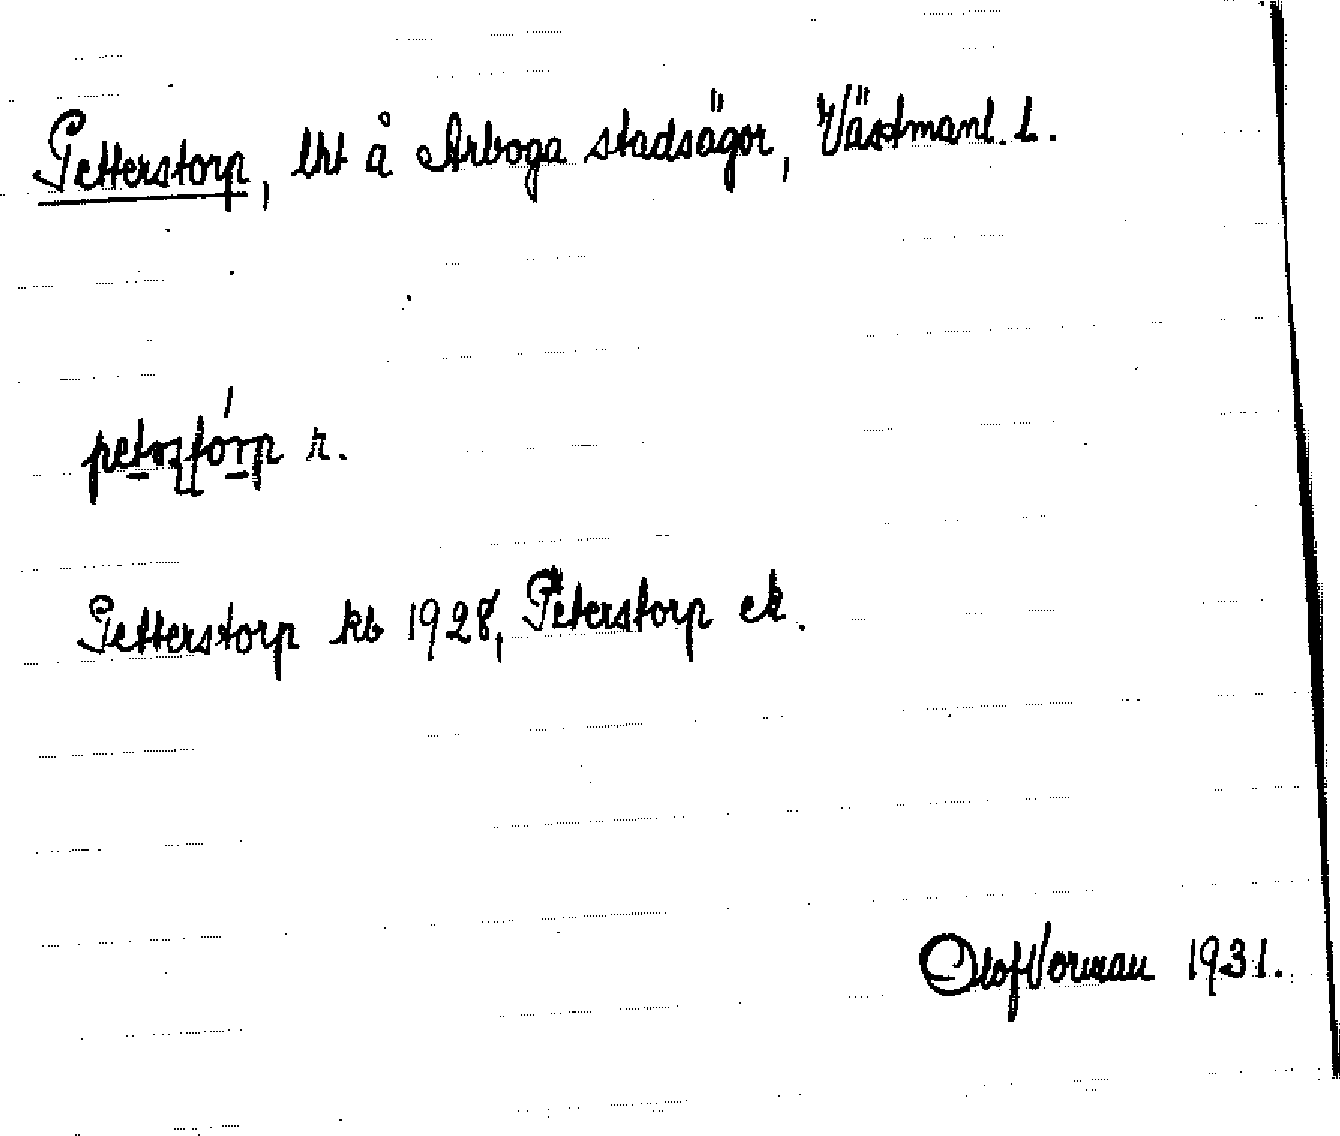 Petterstorp, lht å Arboga stadsägor, Västmanl. L.
petɷsʈórp r.
Petterstorp kb 1928, Peterstorp ek.
Olof Vorman 1931.